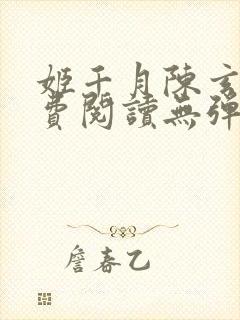 姬千月陳玄
費閱讀無彈
詹春乙